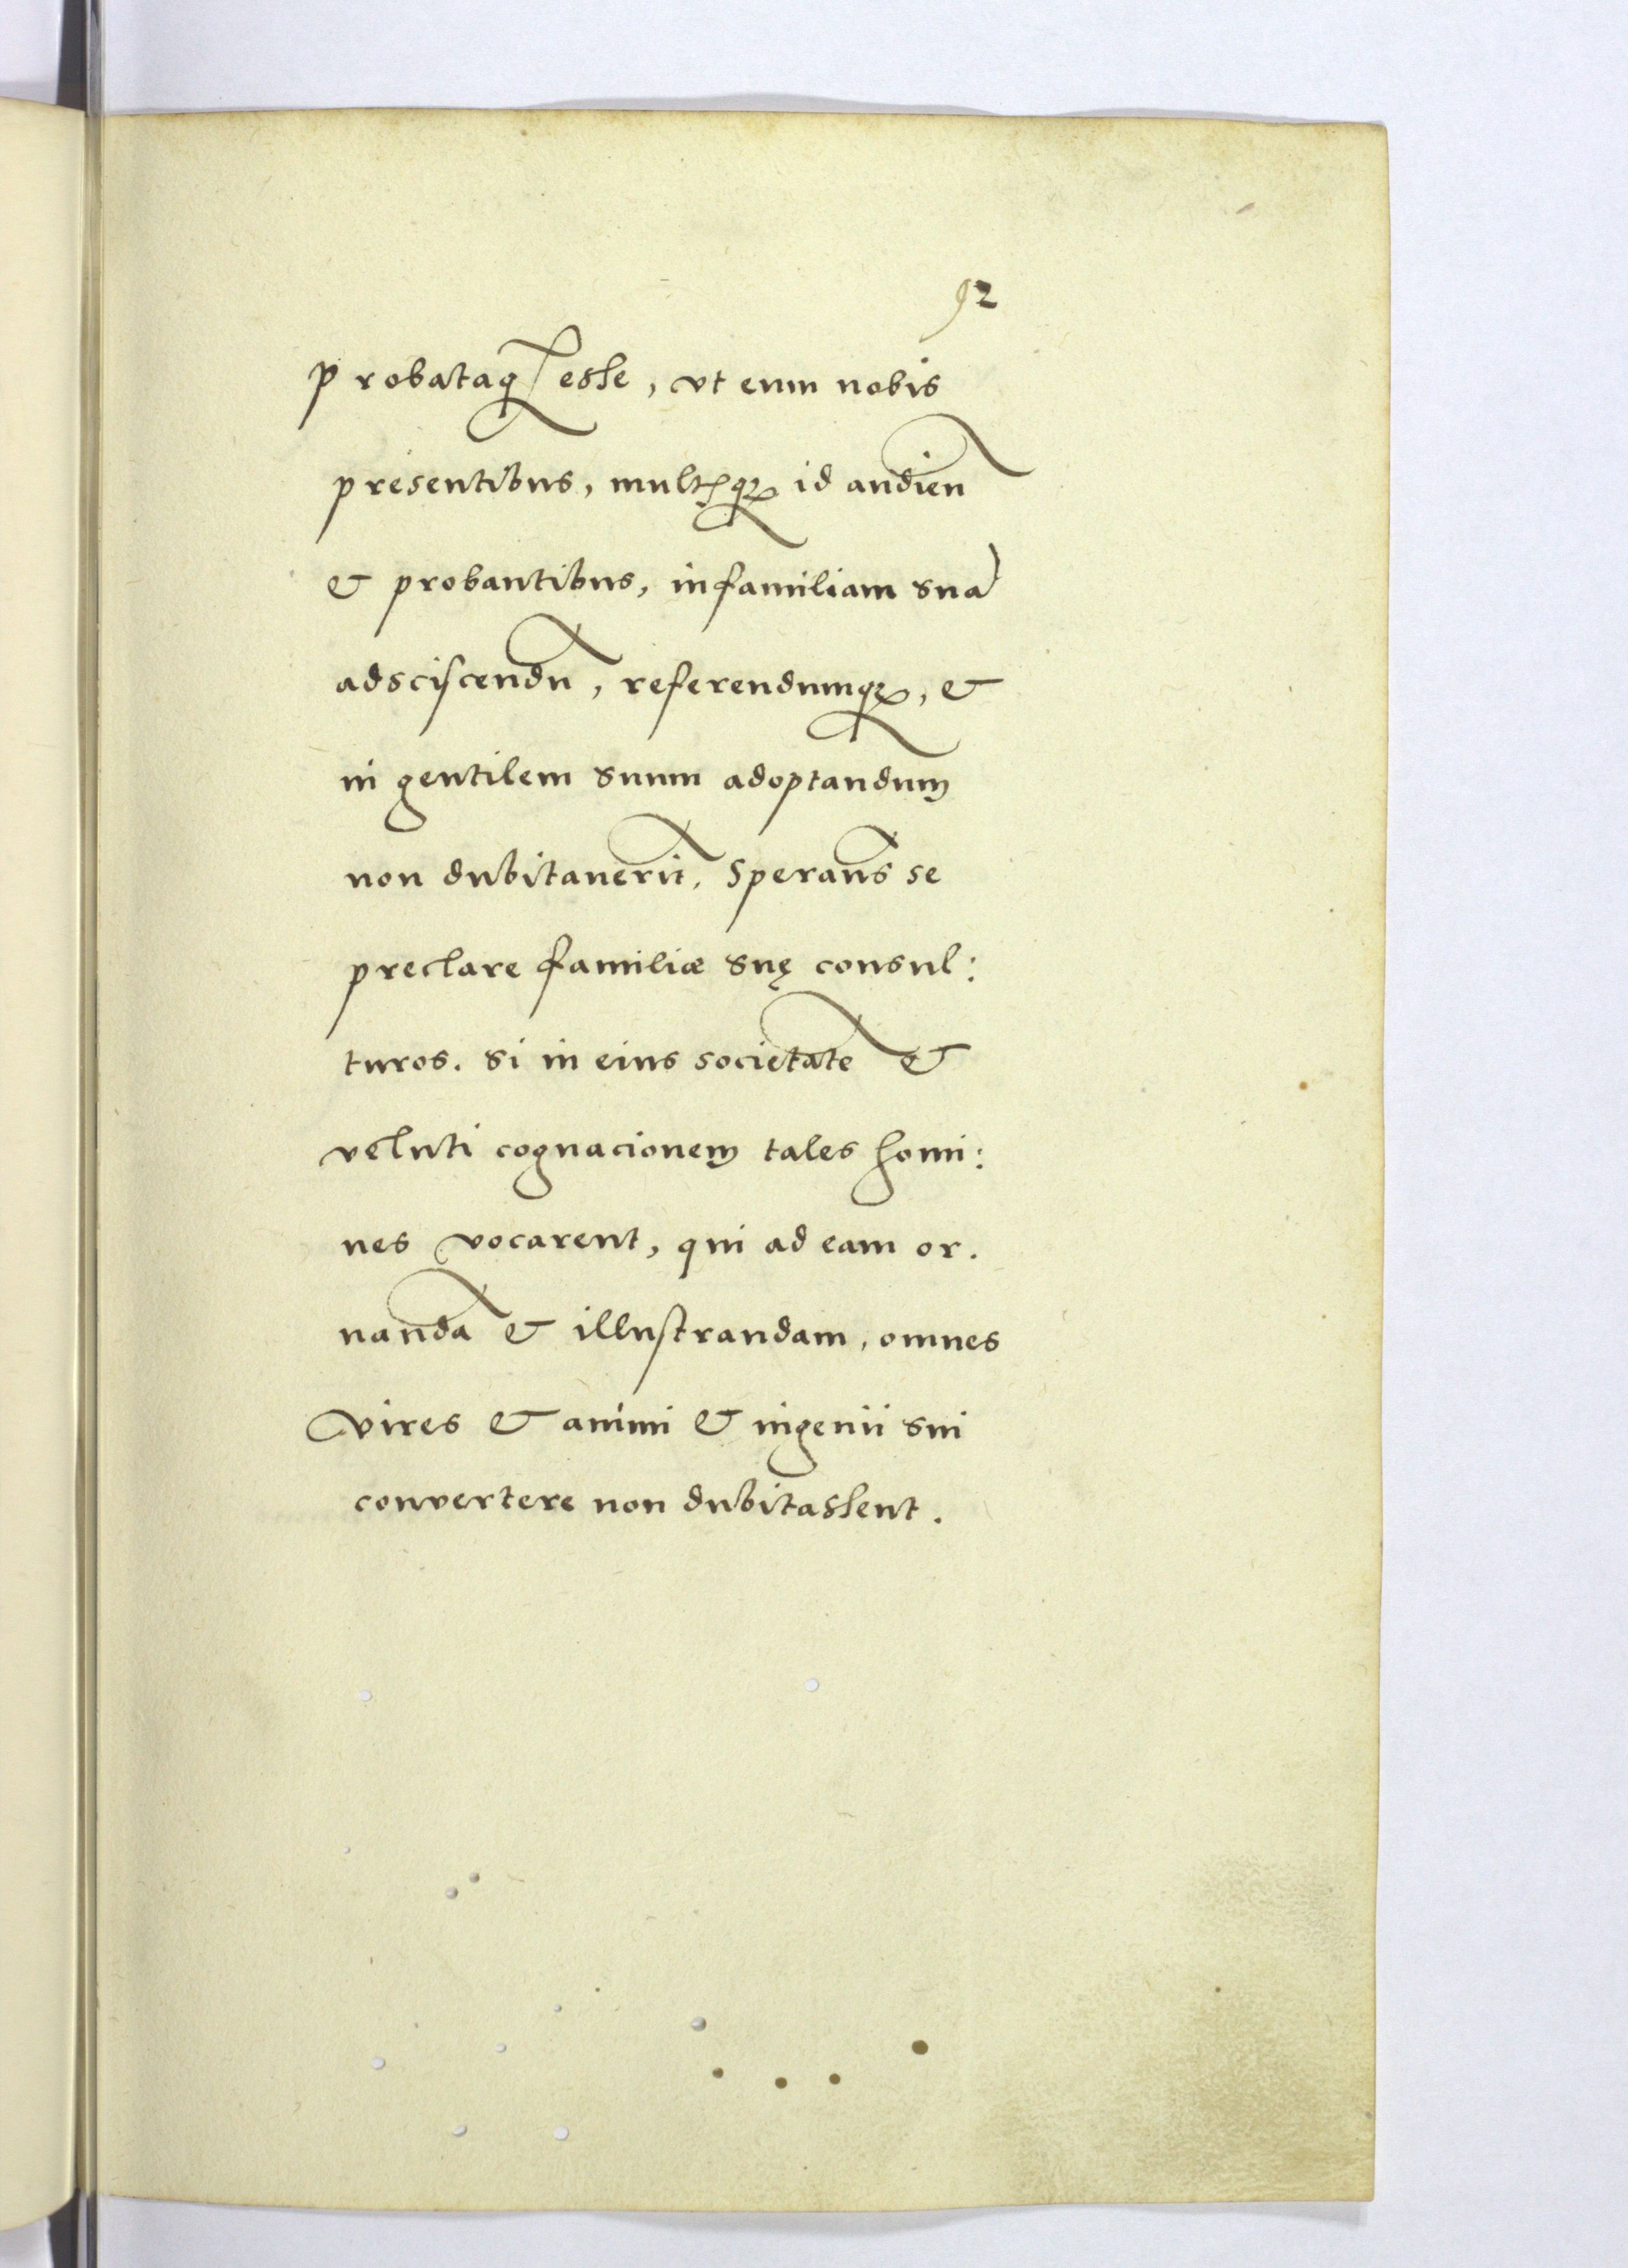 92
probataq esse, vt eum nobis
presentibus, multisqz id audien̄
& probantibus, in familiam suā
adsciscendū, referendumqz, &
in gentilem suum adoptandum
non dubitauerit, Sperans se
preclare familiæ suę consul:
turos. si in eius societatē &
veluti cognacionem tales homi:
nes vocarent, qui ad eam or.
nandā & illustrandam, omnes
vires & animi & ingenii sui
convertere non dubitassent.